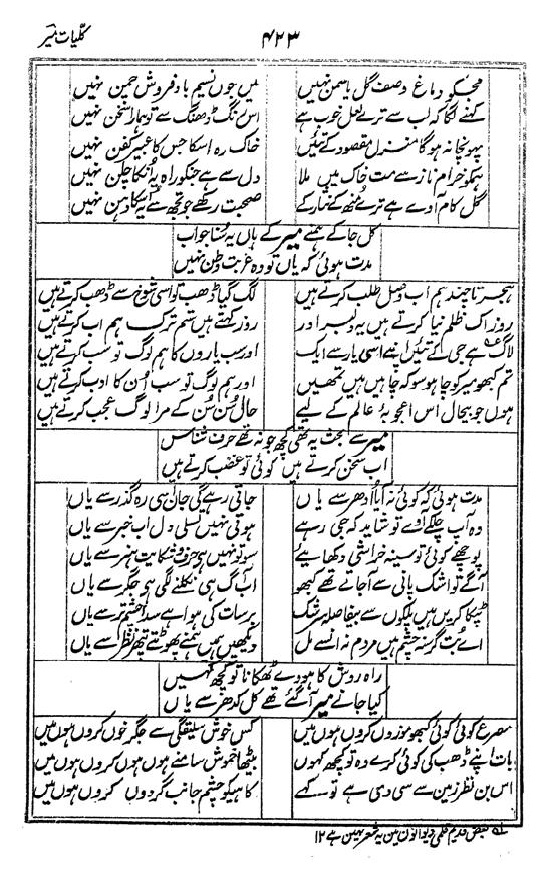 کلیات میر
۴۲۳
مجکو دماغ وصف گل یاسمن نہیں
میں جوں نسیم باد فروش چمن نہیں
کہنے لگا کہ لب سے ترے لعل خوب ہے
اس رنگ ڈھنگ سے تو ہمارا سخن نہیں
پہونچا نہ ہوگا منزل مقصود کے تئیں
خاک رہ اسکا جس کا عبیر کفن نہیں
ہمکو خرام ناز سے مت خاک میں ملا
دل سے ہے جنکو راہ یہ انکا چلن نہیں
گل کام آوے ہے ترے منھ کے نثار کے
صحبت رکھے جو تجھ سے یہ اسکا دہن نہیں
کل جا کے ہمنے میر کے ہاں یہ سنا جواب
مدت ہوئی کہ یاں تو وہ غربت وطن نہیں
ہجر تا چند ہم اب وصل طلب کرتے ہیں
لگ گیا ڈھب تو اسی شوخ سے ڈھب کرتے ہیں
روز اک ظلم نیا کرتے ہیں یہ دلبر اور
روز کہتے ہیں ستم ترک ہم اب کرتے ہیں
لاگ ہے جی کے تئیں اپنے اسی یار سے ایک
اور سب یاروں کا ہم لوگ تو سب کرتے ہیں
تم کبھو میر کو چاہو سو کہ چاہیں ہیں تمھیں
اور ہم لوگ تو سب اُن کا ادب کرتے ہیں
ہوں جو بیحال اس اعجوبۂ عالم کے لیے
حال سن سن کے مرا لوگ عجب کرتے ہیں
میر سے بحث یہ تھی کچھ جو نہ تھے حرف شناس
اب سخن کرتے ہیں کوئی تو غضب کرتے ہیں
مدت ہوئی کہ کوئی نہ آیا اُدھر سے یاں
جاتی رہے گی جان ہی رہ گذر سے یاں
وہ آپ چلکے آوے تو شاید کہ جی رہے
ہوتی نہیں تسلی دل اب خبر سے یاں
پوچھے کوئی تو سینہ خراشی دکھائیے
سو تو نہیں ہی حرف و شکایت ہنر سے یاں
آگے تو اشک پانی سے آجاتے تھے کبھو
اب آگ ہی نکلنے لگی ہی جگر سے یاں
ٹپکا کریں ہیں پلکوں سے بیفاصلہ سرشک
برسات کی ہوا ہے سدا چشم تر سے یاں
اے بُت گرسنہ چشم ہیں مردم نہ انسے مل
دیکھیں ہیں ہمنے پھوٹتے پتھر نظر سے یاں
راہ روش کا ہووے ٹھکانا تو کچھ کہیں
کیا جانے میر آگئے تھے کل کدھر سے یاں
مصرع کوئی کوئی کبھو موزوں کروں ہوں میں
کس خوش سلیقگی سے جگر خوں کروں ہوں میں
بات اپنے ڈھب کی کوئی کرے وہ تو کچھ کہوں
بیٹھا خموش سامنے ہوں ہوں کروں ہوں میں
اس بن نظر زمین سے سی دی ہے تو کہے
کاہیکو چشم جانب گردوں کروں ہوں میں
بعض قدیم قلمی دیوانوں مین یہ شعر نہین ہے ۱۲